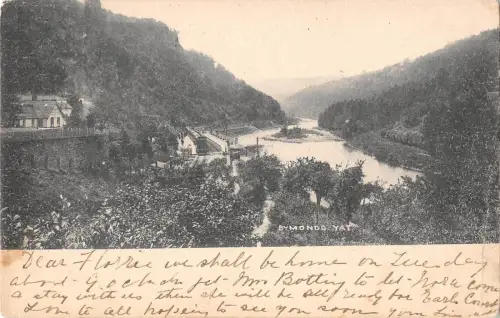 SYMONDS YAT
Dear Florrie we shall be home on Tuesday
about - 9 o'clock get - Mrs Botting to let - Nora come
a stay with us then she will be all ready for Earls Court
Love to all hoping to see you soon your loving